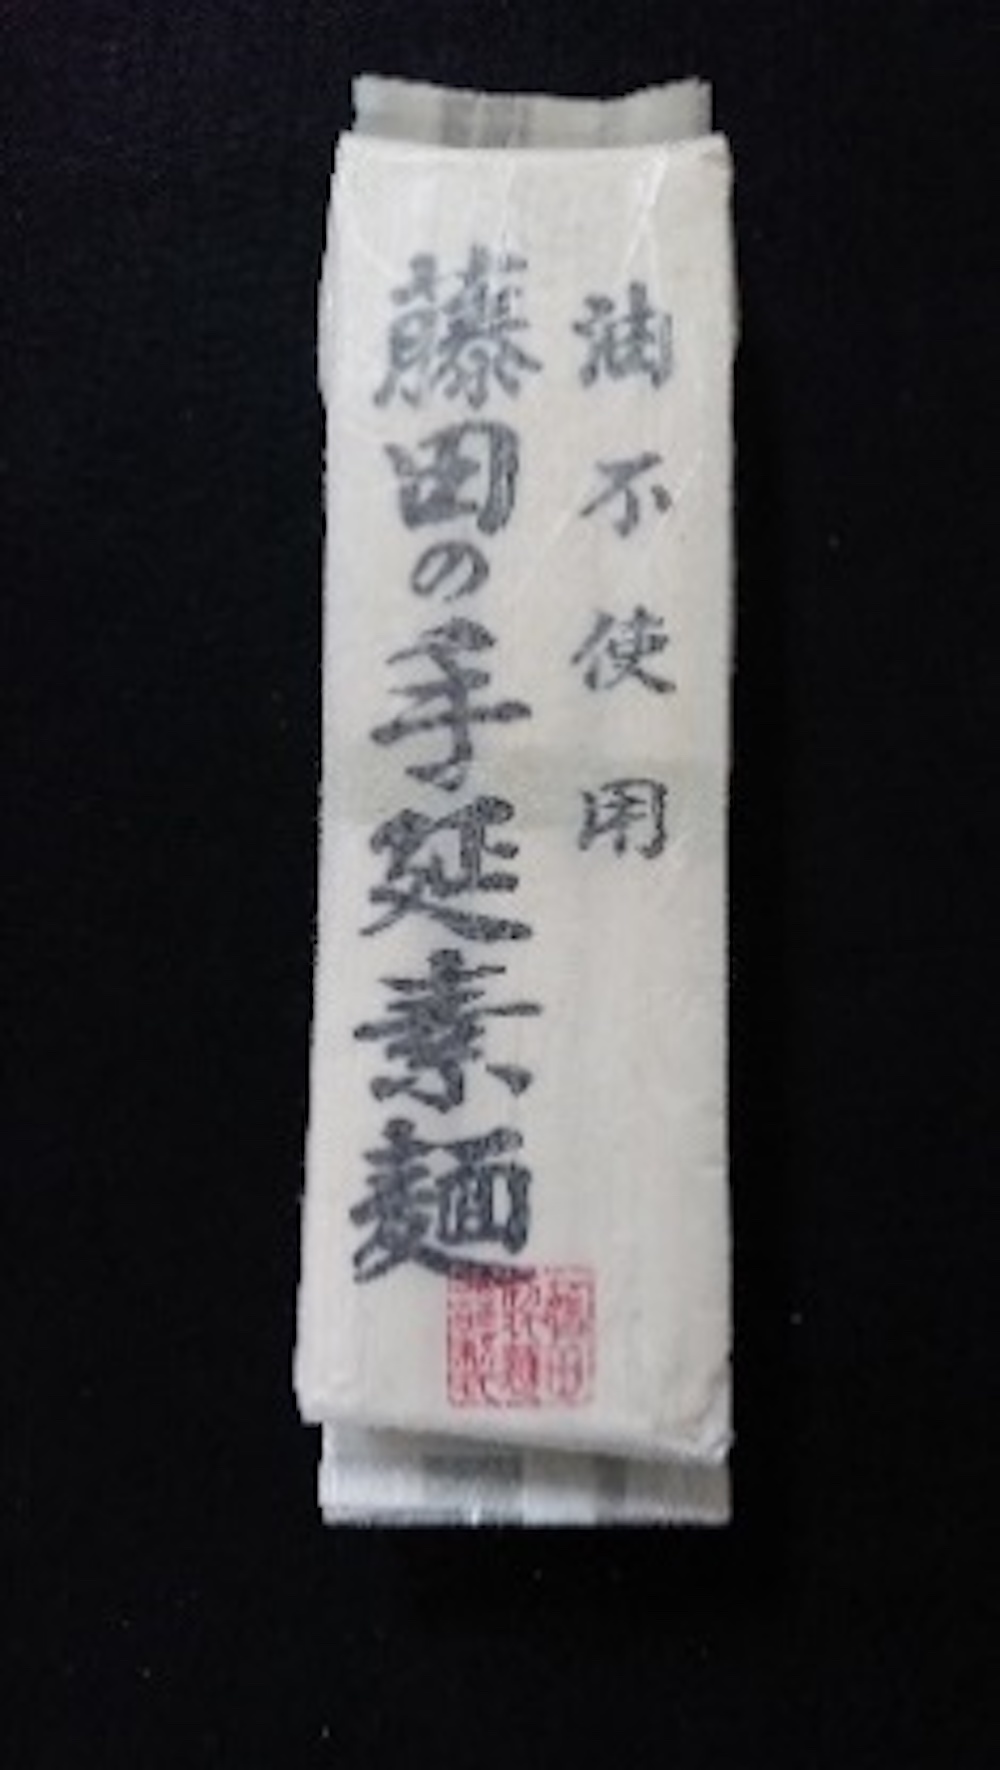 油不使用
藤田の手延素麺